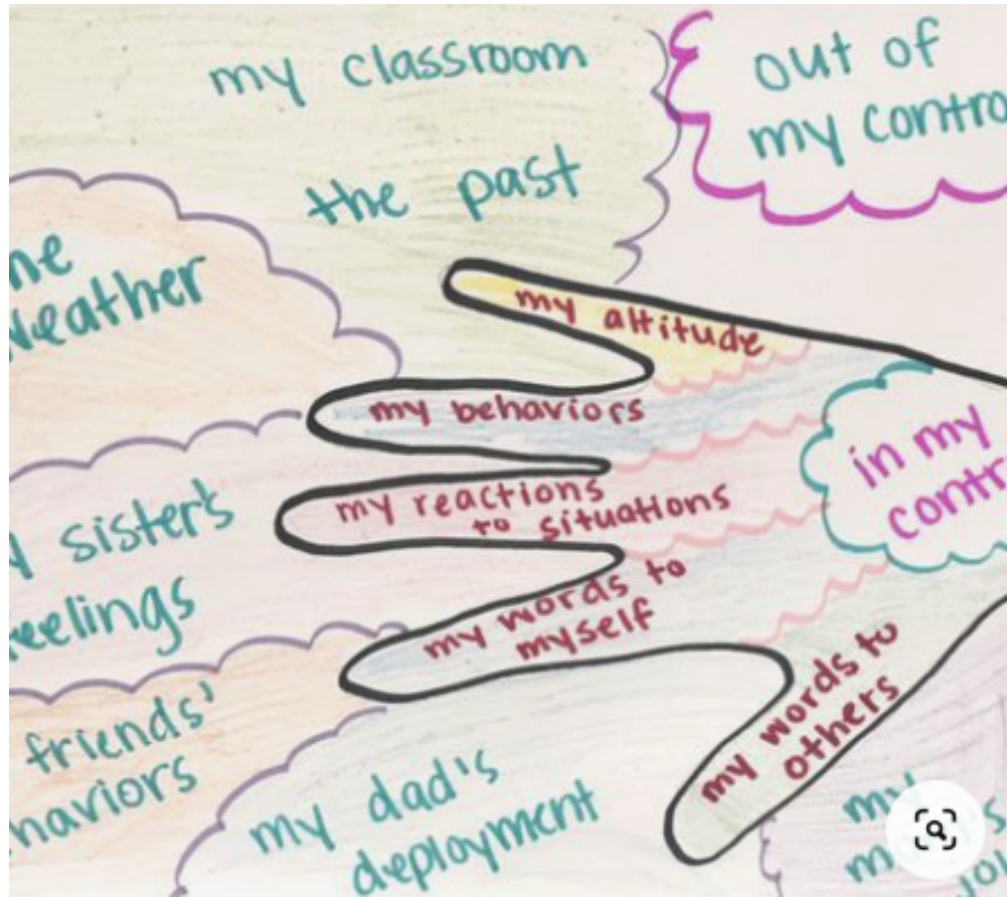 my classroom
the past
out of
my contro
ne
Weather
my attitude
my behaviors
in my
contr
my reactions
to situations
y sister's
eelings
my words to
myself
my words to
others
friends'
haviors
my dad's
deployment
my